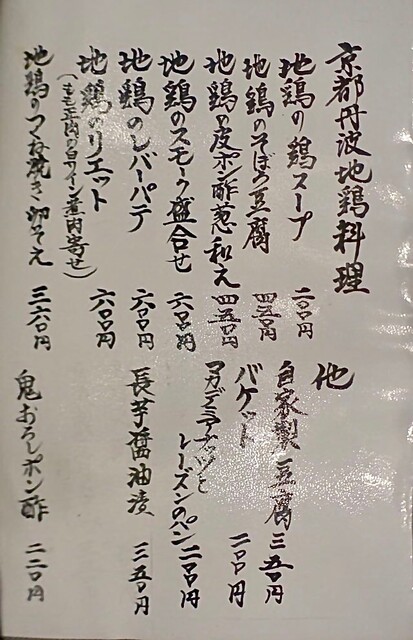 京都丹波地鶏料理
地鶏の鶏スープ 二〇〇円
地鶏のそぼろ豆腐 四五〇円
地鶏の皮ポン酢葱和え 四五〇円
地鶏のスモーク盛合せ 六〇〇円
地鶏のレバーパテ 六〇〇円
地鶏のリエット 六〇〇円
(もも正肉の白ワイン煮肉寄せ)
地鶏のつくね焼き卵そえ 三六〇円
他
自家製豆腐 三五〇円
バケット 二〇〇円
マカデミアナッツと
レーズンのパン 二〇〇円
長芋醤油漬 三五〇円
鬼おろしポン酢 二二〇円